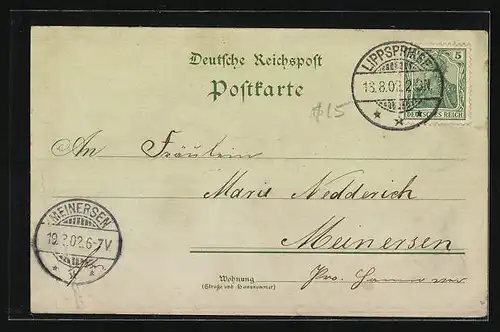 Deutsche Reichspost
Postkarte
LIPPSPRINGE
18.8.02.
5
DEUTSCHES REICH
$15
An Fräulein
Marie Nedderich
Meinersen
MEINERSEN
19.8.02.6-7V
Wohnung
(Straße und Hausnummer)
Prov. Hannover